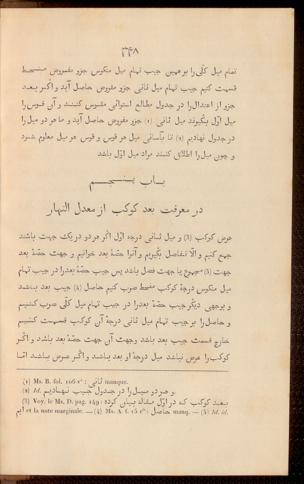 ۳۴۸
تمام میل کلّی را بر همین جیب تمام میل منکوس جزو مفروض منحط
قسمت کنیم جیب تمام میل ثانی جزو مفروض حاصل آید و اکر بعد
جزو از اعتدال را در جدول مطالع استوائی مقوس کنند و آن قوس را
میل اوّل بکیرند میل ثانی (1) جزو مفروض حاصل آید و ما هر دو میل را
در جدول نهادیم (2) تا بآسانی میل هر قوس و قوس هر میل معلوم شود
و چون میل را اطلاق کنند مراد میل اوّل باشد
باب پنجم
در معرفت بعد کوکب از معدل النهار
عرض کوکب (3) و میل ثانی درجهٔ اوّل اکر هر دو در یک جهت باشند
جمع کنیم و الّا تفاضل بکیریم و آنرا حصّهٔ بعد خوانیم و جهت حصّهٔ بعد
جهت (5) مجموع یا جهت فضل باشد پس جیب حصّهٔ بعد را در جیب تمام
میل منکوس درجهٔ کوکب منحط ضرب کنیم حاصل (4) جیب بعد باشد
و بوجهی دیکر جیب حصّهٔ بعد را در جیب تمام میل کلّی ضرب کنیم
و حاصل را بر جیب تمام میل ثانی درجهٔ آن کوکب قسمت کنیم
خارج قسمت جیب بعد باشد وجهت آن جهت حصّهٔ بعد باشد و اکر
کوکب را عرض نباشد میل درجهٔ او بعد باشد و اکر عرض باشد امّا
(1) Ms. B. fol. 106 rº : ثانی manque.
(2) Id. و هر دو میل را در جدول جیب نهادیم.
(3) Voy. le Ms. D. pag. 149 : بعد کوکب که در اوّل مقاله بیان کرده
ایم et la note marginale. — (4) Ms. A f. 15 rº : حاصل manq. — (5) Id. id.